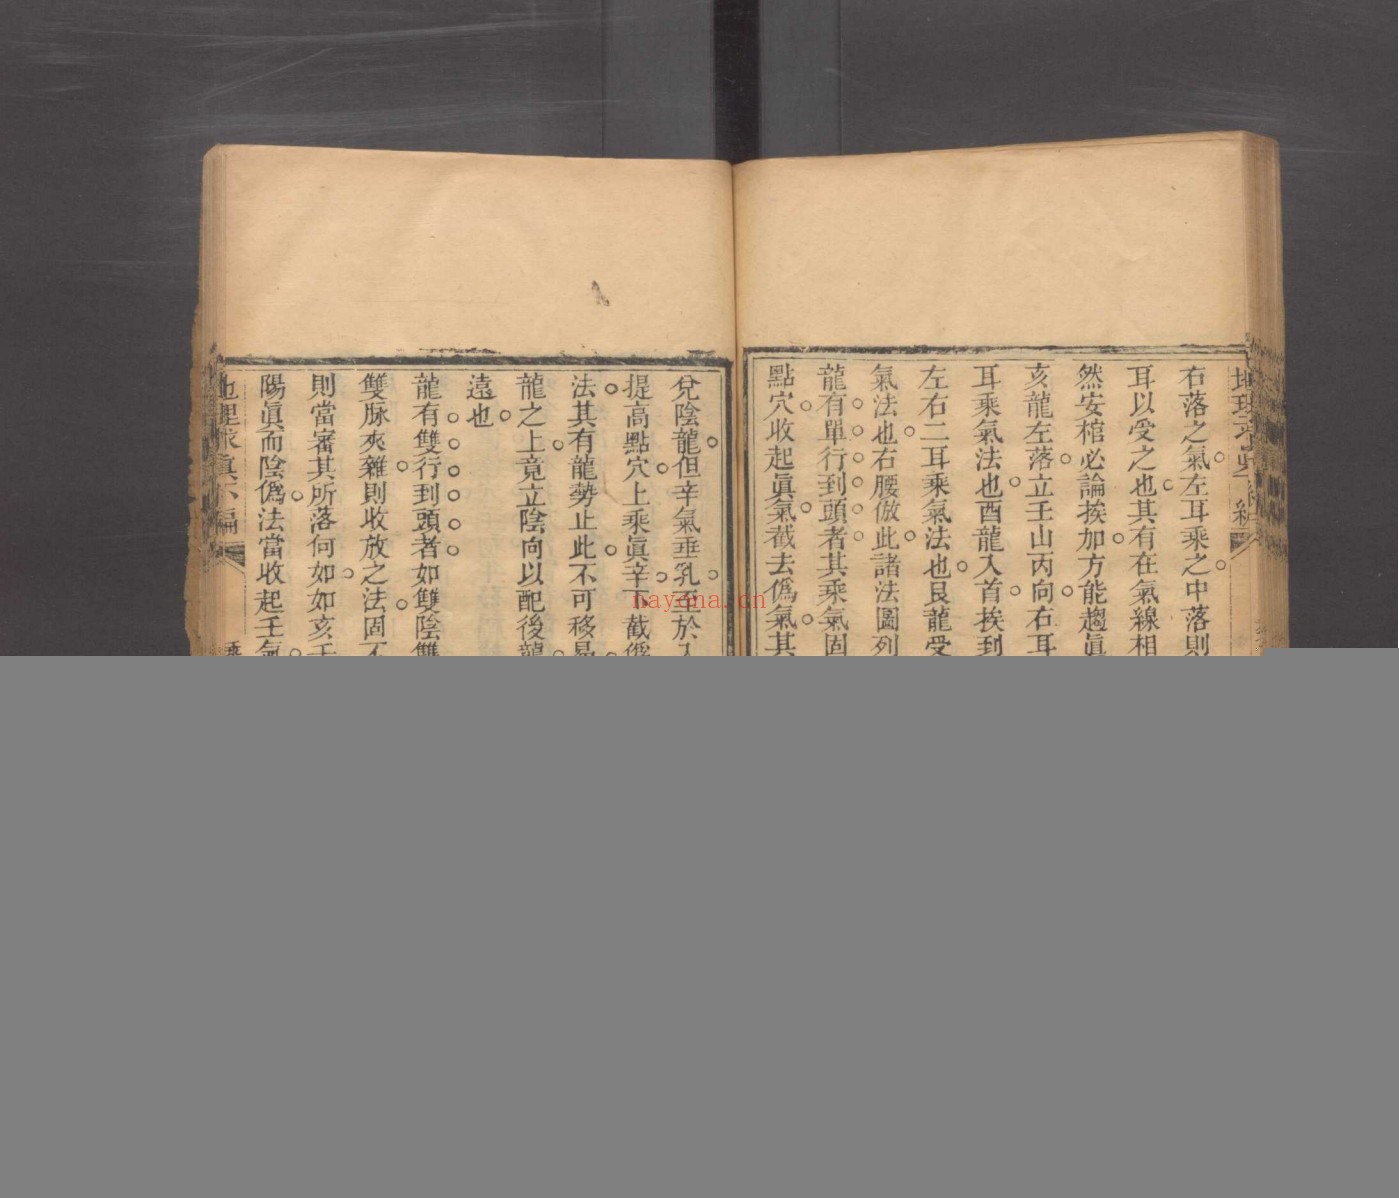 右落之氣左耳乘之中落則
耳以受之也其有在氣線相
然安棺必論挨加方能趨眞
亥龍左落立壬山丙向右耳
耳乘氣法也酉龍入首挨到
左右二耳乘氣法也艮龍受
氣法也右腰倣此諸法圖列
龍有單行到頭者其乘氣固
點穴收起眞氣截去僞氣其
兌陰龍但辛氣垂乳至於入
提高點穴上乘眞辛下截
法其有龍勢止此不可移易
龍之上竟立陰向以配後龍
遠也
龍有雙行到頭者如雙陰雙
雙脉夾雜則收放之法固不
則當審其所落何如如亥壬
陽眞而陰僞法當收起壬氣
地理求眞 編
nayona.cn